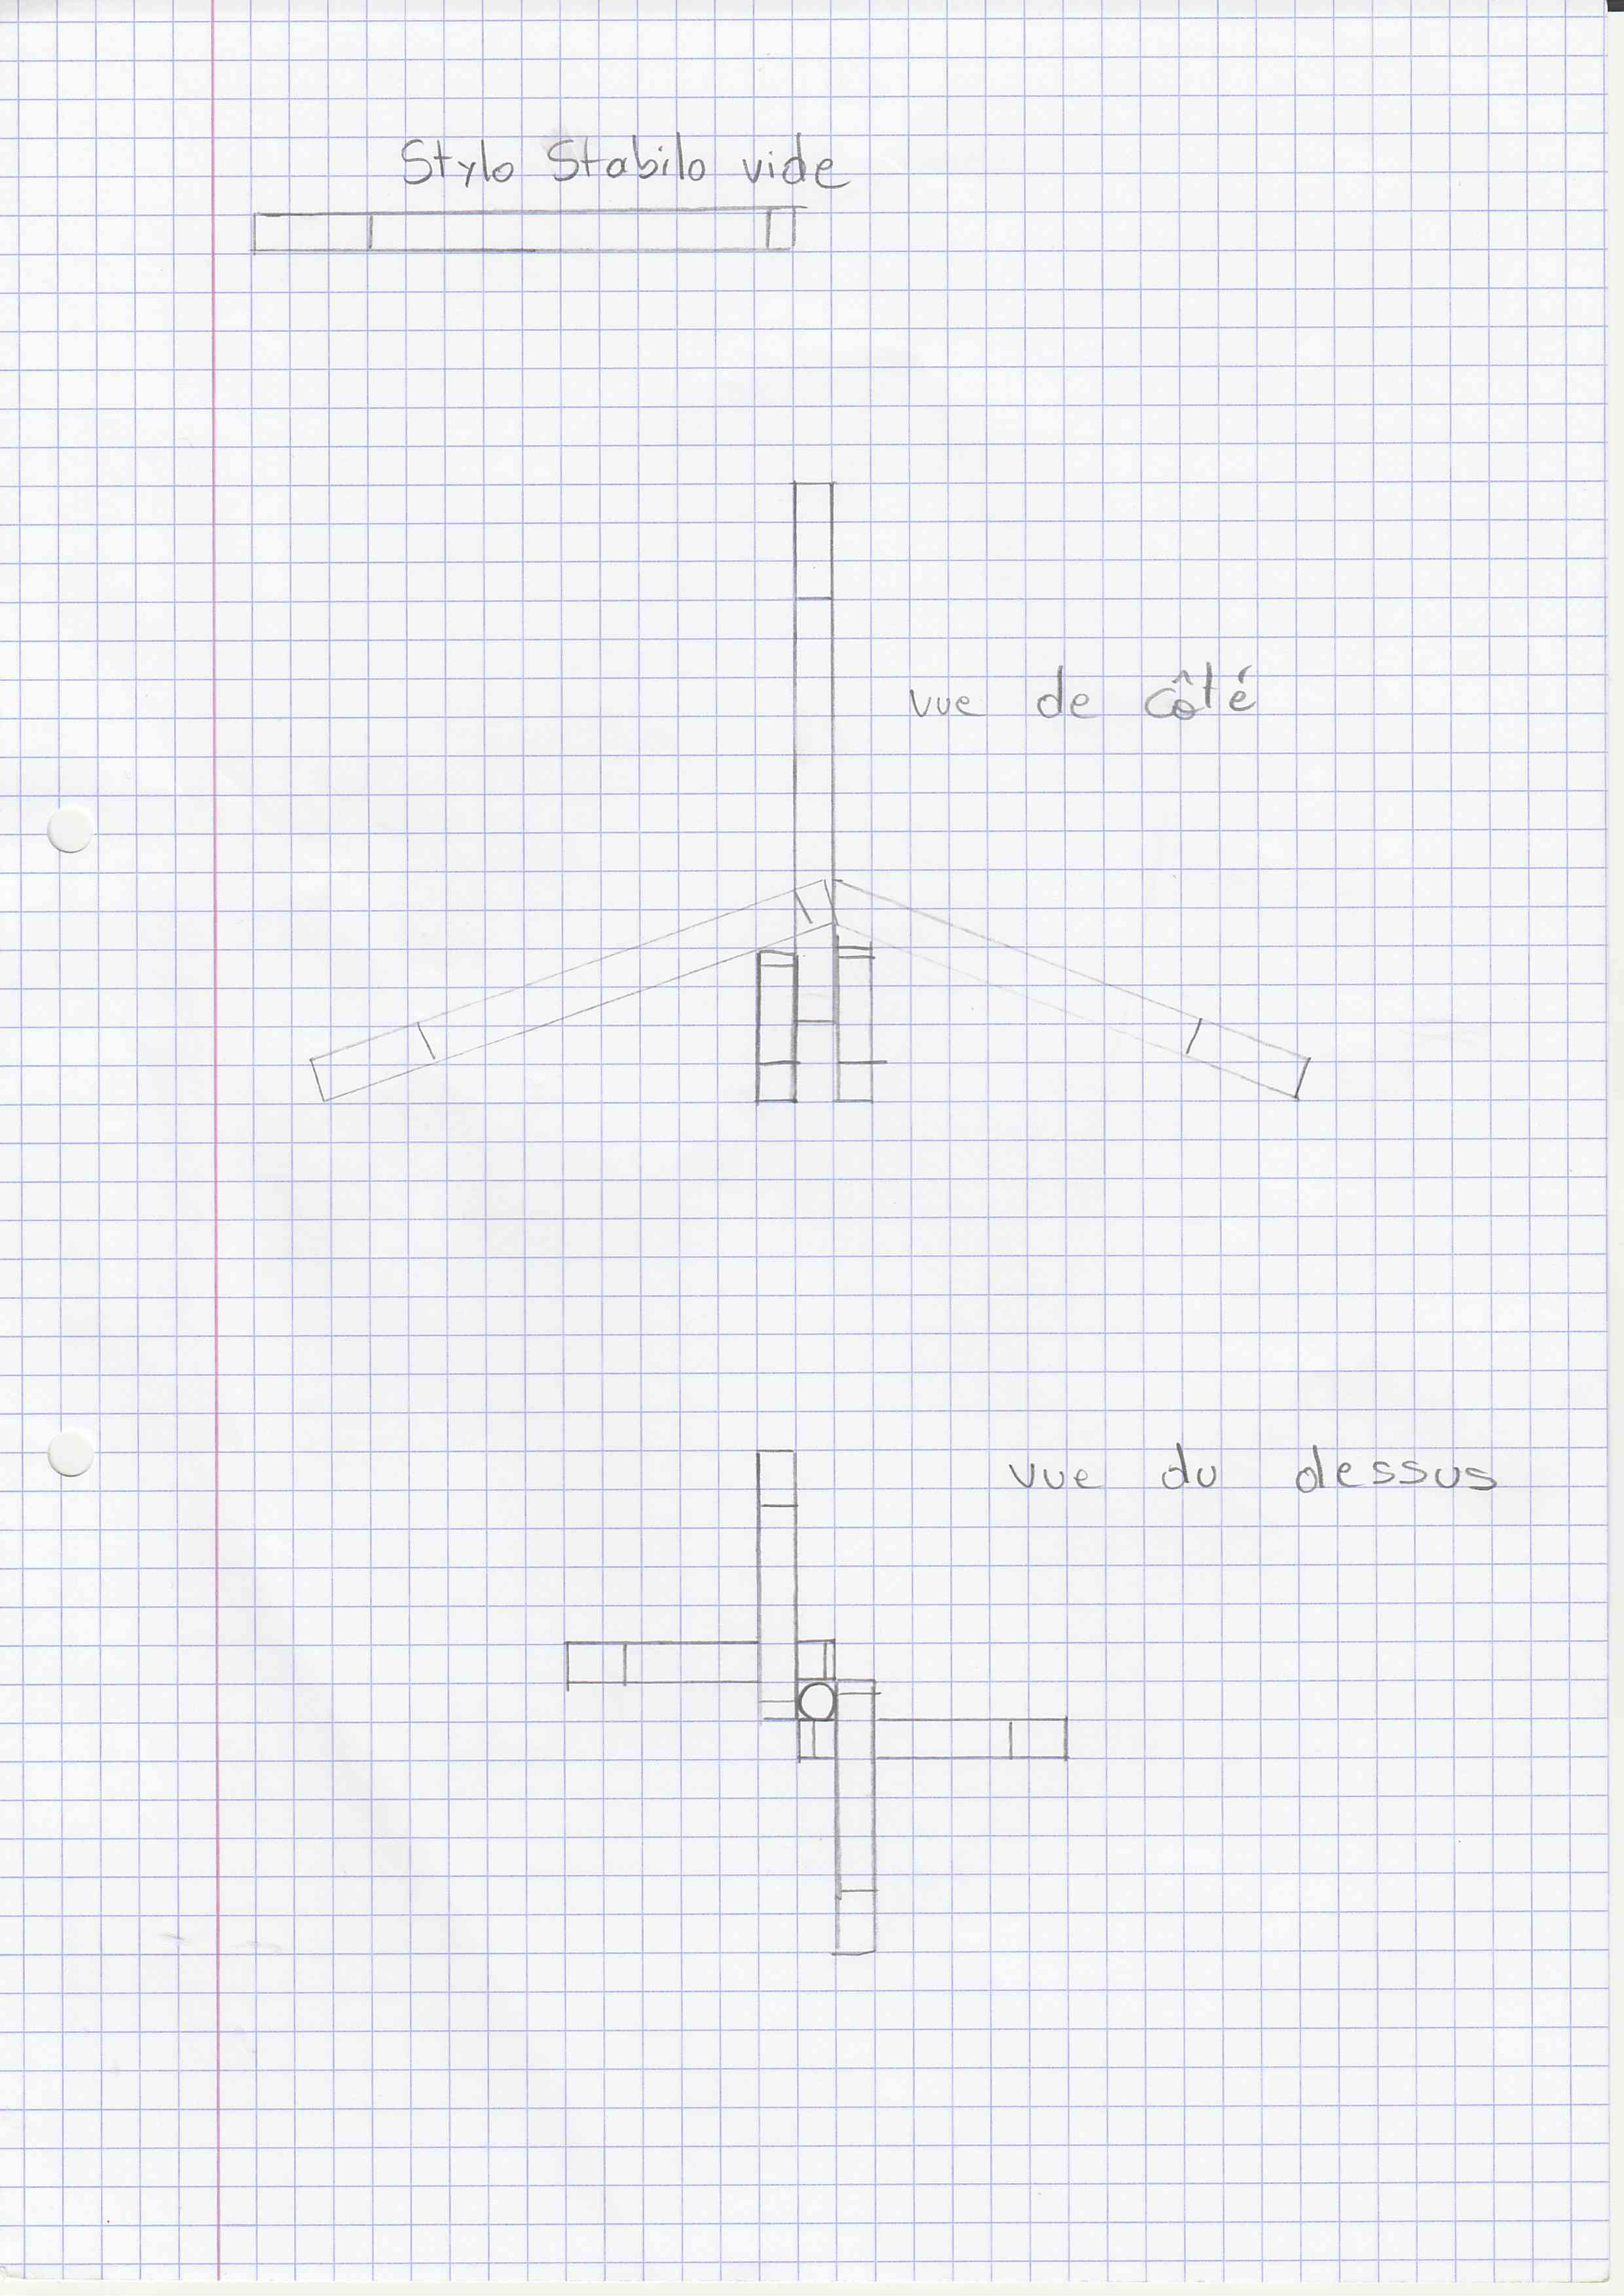 Stylo Stabilo vide
vue de côté
vue du dessus